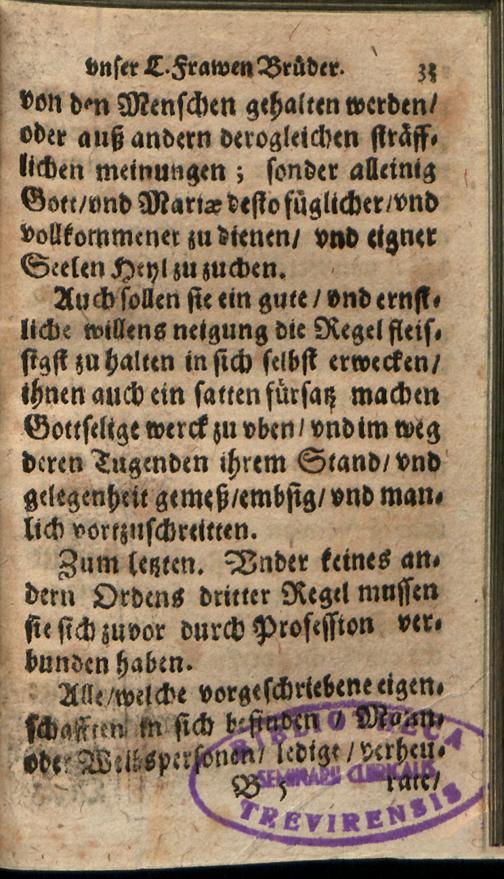 vnser L. Frawen Brüder. 33
von den Menschen gehalten werden/
oder auß andern derogleichen sträff-
lichen meinungen ; sonder alleinig
Gott/vnd Mariæ desto füglicher/vnd
vollkommener zu dienen/ vnd eigner
Seelen Heyl zu zuchen.
Auch sollen sie ein gute / vnd ernst-
liche willens neigung die Regel fleis-
sigst zu halten in sich selbst erwecken/
ihnen auch ein satten fürsatz machen
Gottselige werck zu vben/ vnd im weg
deren Tugenden ihrem Stand/ vnd
gelegenheit gemeß/embsig/ vnd man-
lich vortzuschreitten.
Zum letzten. Vnder keines an-
dern Ordens dritter Regel mussen
sie sich zuvor durch Profession ver-
bunden haben.
Alle/welche vorgeschriebene eigen-
schafften in sich befinden / Mann-
oder Weibspersonen/ ledige / verheu-
B 5 rate/
BIBLIOTHECA
SEMINARII CLERICALIS
TREVIRENSIS